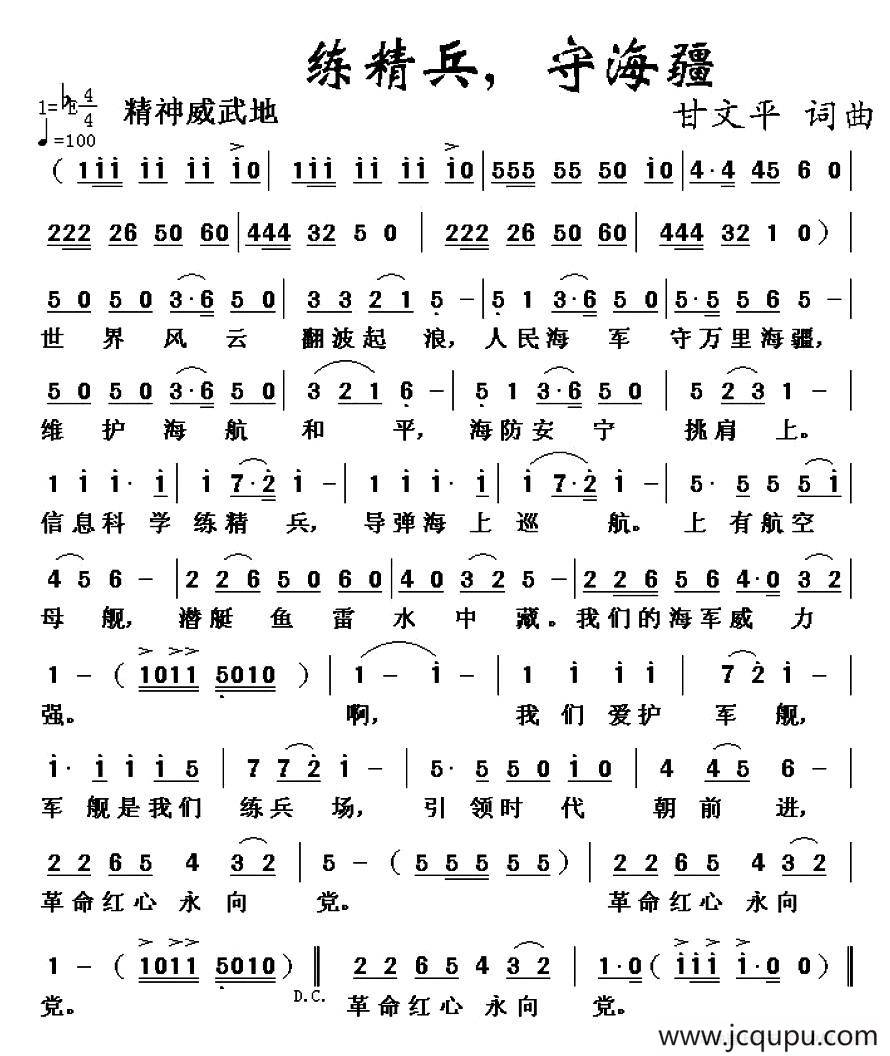 练精兵，守海疆
1=♭E 4/4
精神威武地
甘文平 词曲
♩=100
（1i̇i̇ i̇i̇ i̇i̇ i̇0 | 1i̇i̇ i̇i̇ i̇i̇ i̇0 | 555 55 50 i̇0 | 4·4 45 6 0 |
222 26 50 60 | 444 32 5 0 | 222 26 50 60 | 444 32 1 0 ）|
5 0 5 0 3·6 5 0 | 3 3 2 1 5 － | 5 1 3·6 5 0 | 5·5 5 6 5 － |
世 界 风 云 翻波起 浪，人民海 军 守万里海疆，
5 0 5 0 3·6 5 0 | 3 2 1 6 － | 5 1 3·6 5 0 | 5 2 3 1 － |
维 护 海 航 和 平，海防安 宁 挑肩 上。
1 i̇ i̇· i̇ | i̇ 7·2̇ i̇ － | 1 i̇ i̇· i̇ | i̇ 7·2̇ i̇ － | 5· 5 5 5 5 i̇ |
信息科 学 练精 兵，导弹海 上 巡 航。上 有航空
4 5 6 － | 2 2 6 5 0 6 0 | 4 0 3 2 5 － | 2 2 6 5 6 4·0 3 2 |
母 舰，潜艇 鱼 雷 水 中 藏。我们的海军威 力
1 －（1011 5010）| 1 － i̇ － | 1 i̇ i̇ i̇ | 7 2̇ i̇ － |
强。 啊， 我 们 爱护 军 舰，
i̇· i̇ i̇ i̇ 5 | 7 7 2̇ i̇ － | 5· 5 5 0 i̇ 0 | 4 4 5 6 － |
军 舰是我们 练兵 场，引 领时 代 朝前 进，
2 2 6 5 4 3 2 | 5 －（5 5 5 5 5）| 2 2 6 5 4 3 2 |
革命红心 永 向 党。 革命红心 永向
1 －（1011 5010）‖ 2 2 6 5 4 3 2 | 1·0（i̇i̇i̇ i̇·0 0）‖
D.C.
党。 革命红心 永向 党。
www.jcqupu.com